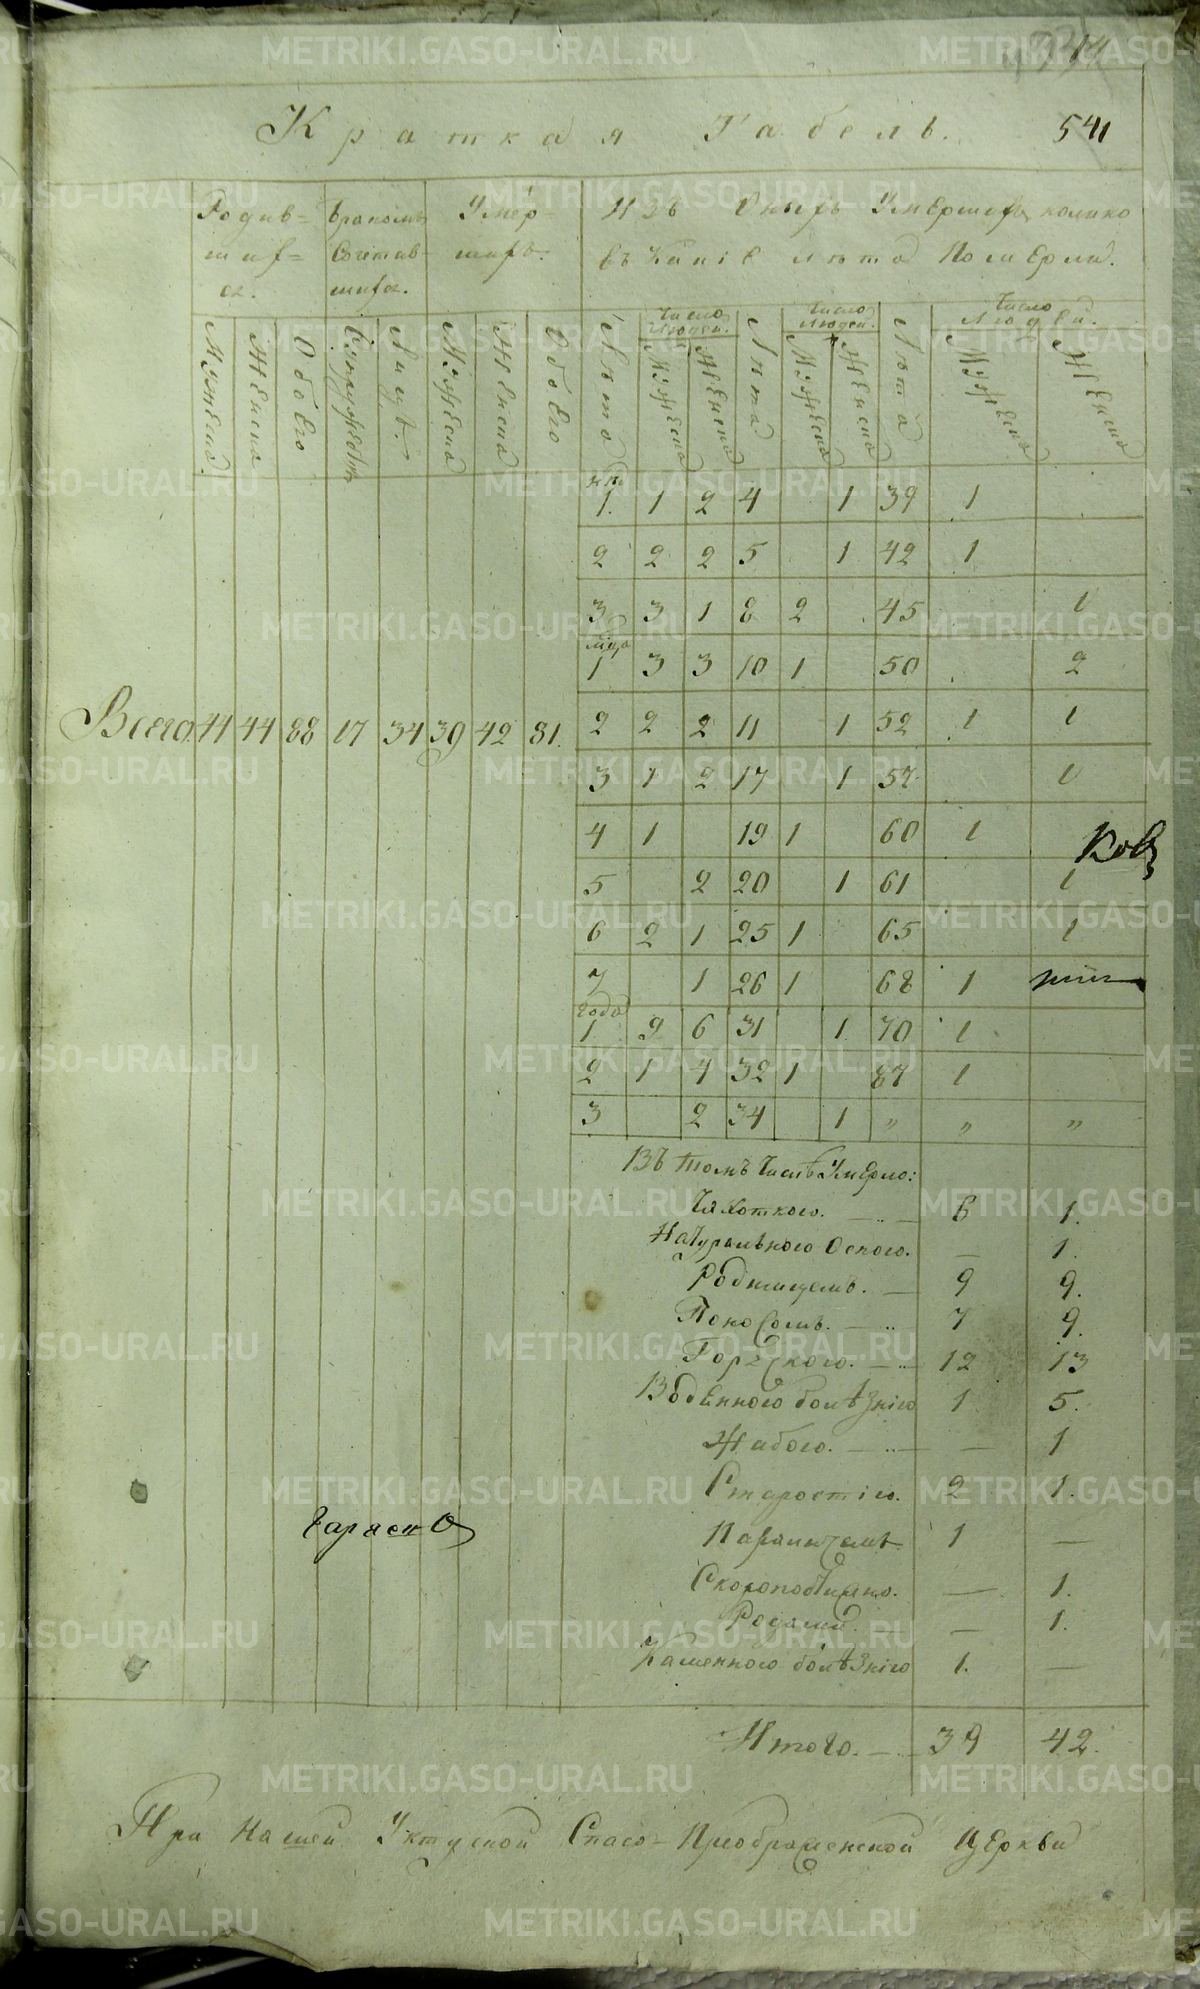 METRIKI.GASO-URAL.RU
Краткая Табель.
541
Родив=
шиf=
ся.
Бракомъ
Сочетав-
шиfся.
Умер-
шиfъ.
Изъ Оныfъ Умершиfъ, колико
въ Какіе лѣта Померли.
Мужеска.
Женска
Обоего
Супружествъ
Лицъ.
Мужеска
Женска
Обоего
Лѣта
Число Людей.
Мужеска
Женска
Лѣта
Число Людей.
Мужеска
Женска
Лѣта
Число Людей.
Мужеска
Женска
1. 1 2 4 1 39 1
2 2 2 5 1 42 1
3 3 1 8 2 45 1
1 3 3 10 1 50 2
Всего 44 44 88 17 34 39 42 81.
2 2 2 11 1 52 1 1
3 1 2 17 1 57 1
4 1 19 1 60 1
5 2 20 1 61 1
6 2 1 25 1 65 1
7 1 26 1 68 1
года
1 9 6 31 1 70 1
2 1 4 32 1 87 1
3 2 34 1 „ „ „
Въ томъ Числѣ Умерло:
Чяхоткою. 6 1.
Натуральною Оспою. — 1.
Родимцемъ. 9 9.
Поносомъ. 7 9.
Горячкою. 12 13
Водянною болѣзніею 1 5.
Жабою. — 1
Старостію. 2 1.
Параличемъ 1 —
Скоропостижно. — 1.
Родами. — 1.
Каменною болѣзніею 1. —
Итого. 39 42.
При Нашей Уктуской Спасо-Преображенской Церкви